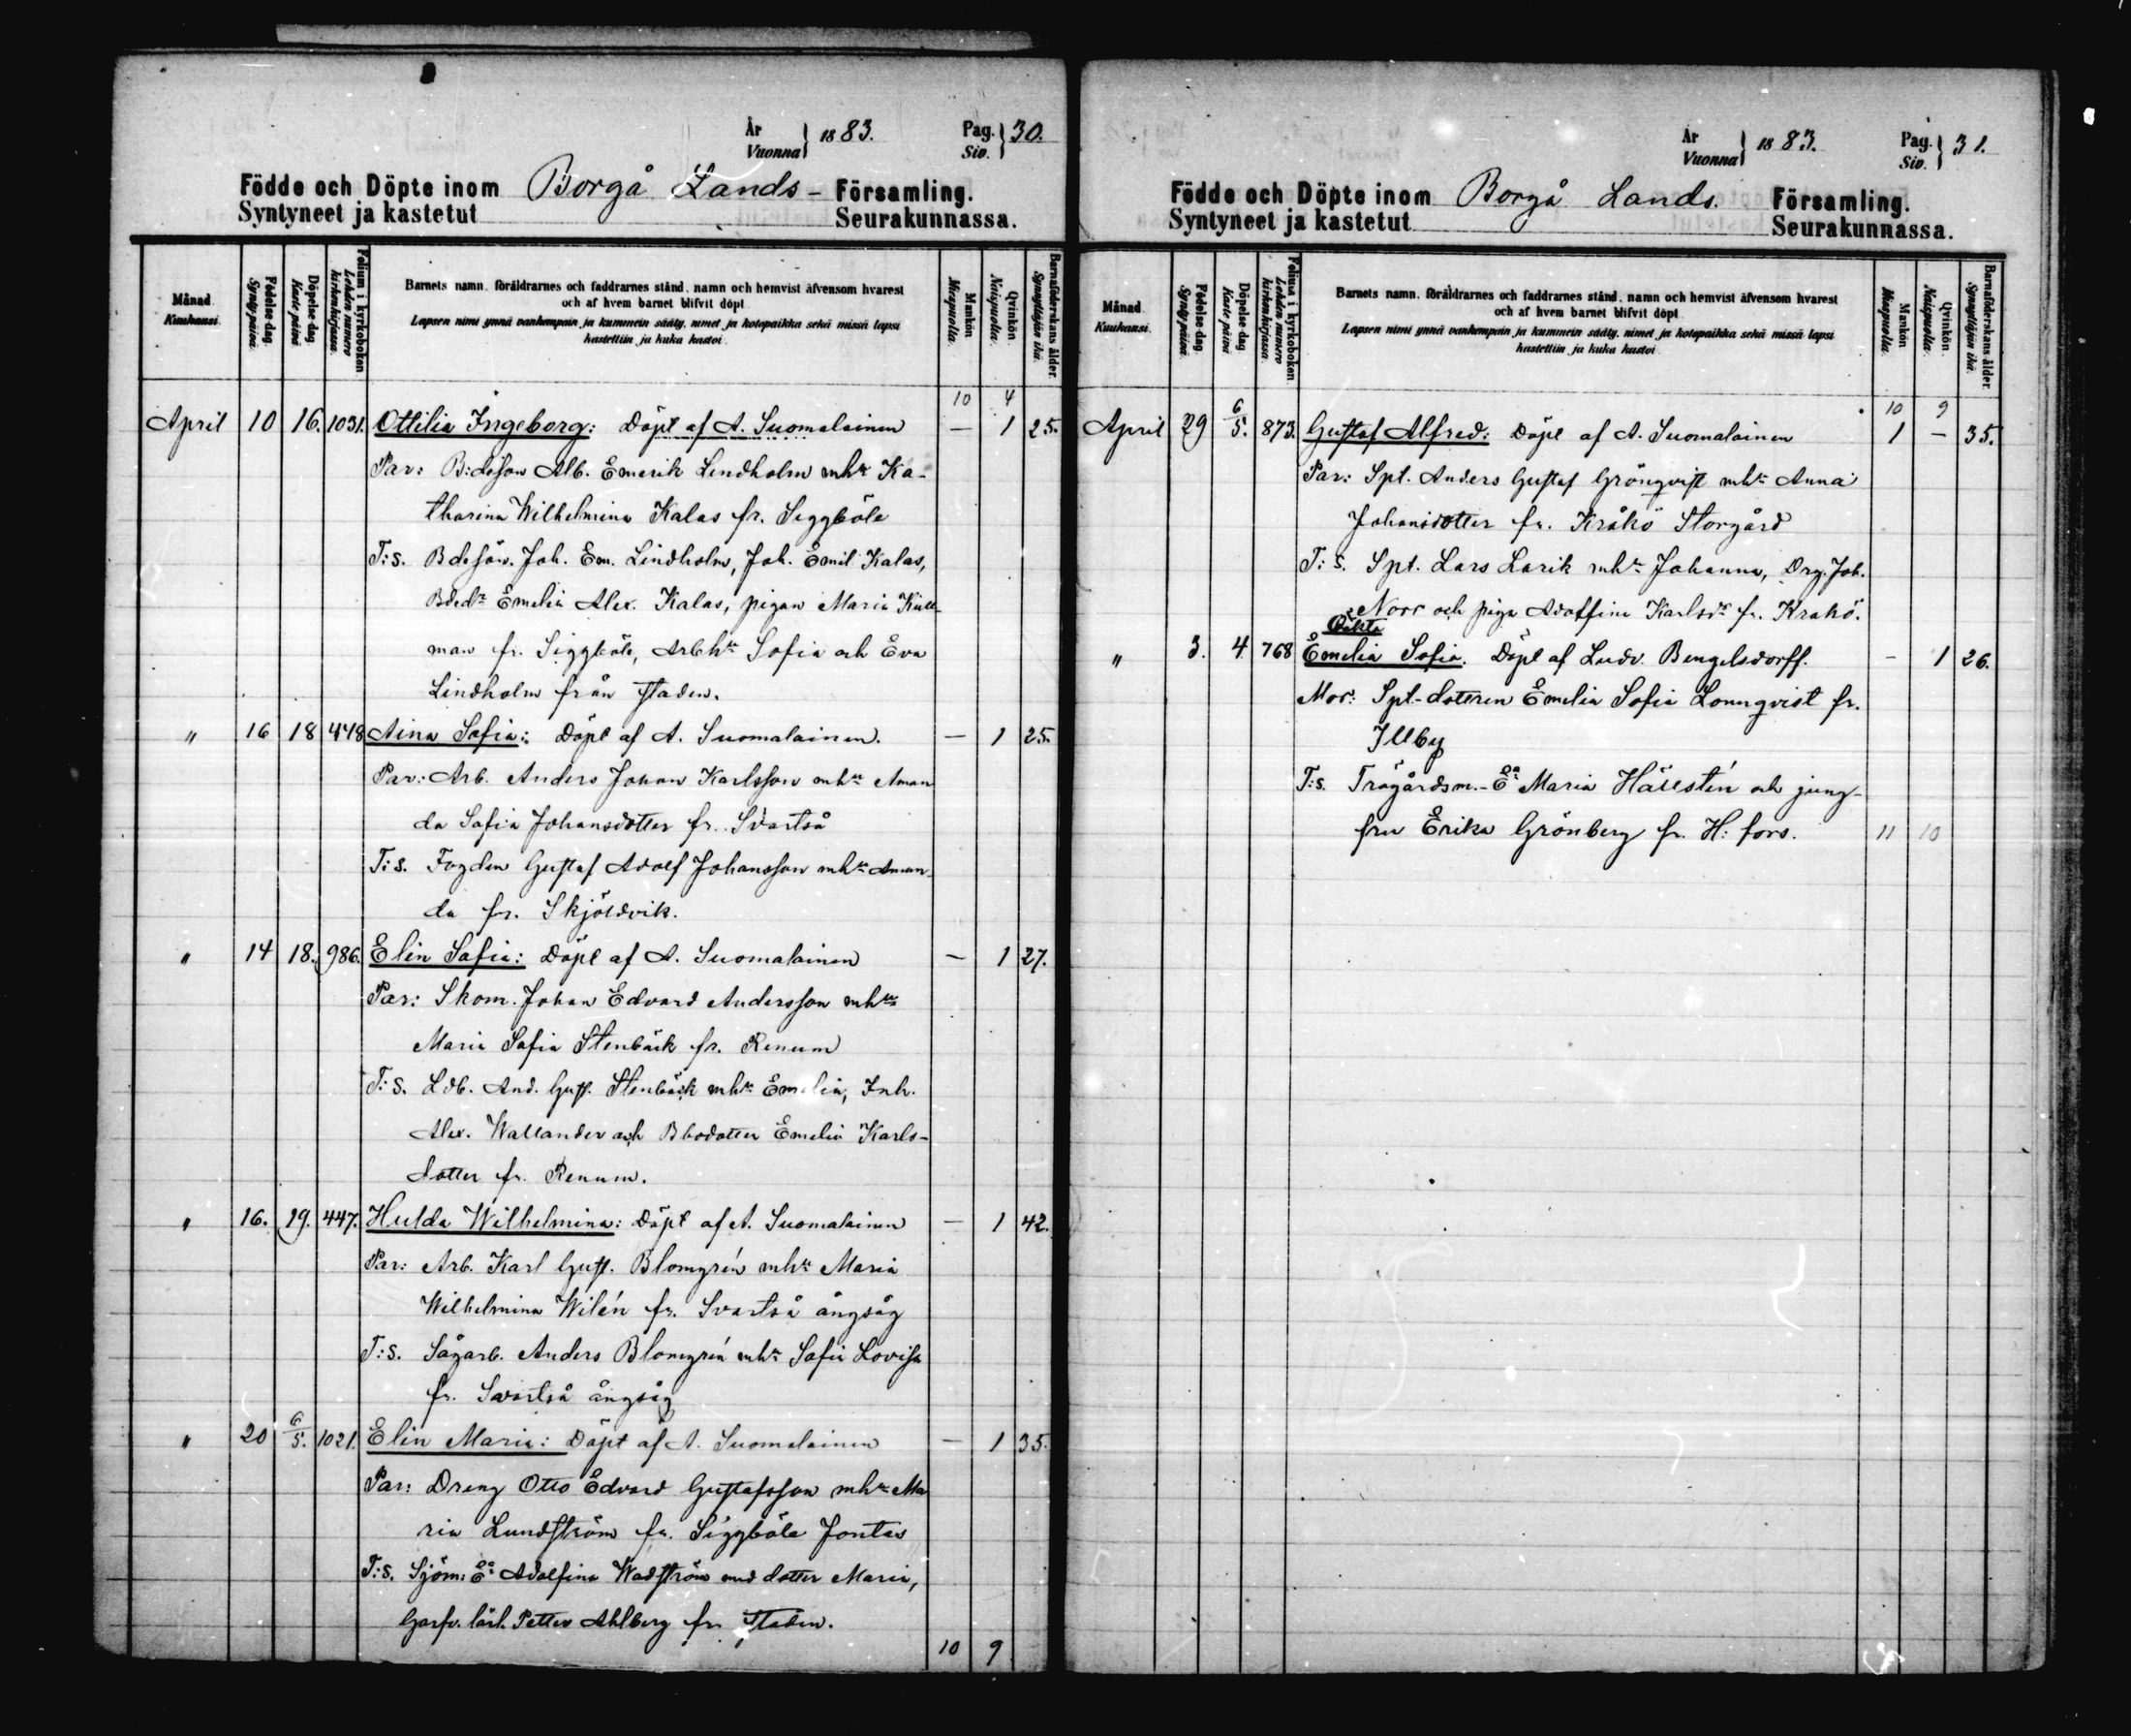 År
Vuonna } 1883. Pag. Siv. } 30.
Födde och Döpte inom Borgå Lands- Församling.
Syntyneet ja kastetut Seurakunnassa.
Månad Kuukausi. Födelse dag. Synty päivä. Döpelse dag. Kaste päivä Folium i kyrkoboken Lehden numero kirkonkirjassa. Barnets namn, föräldrarnes och faddrarnes stånd, namn och hemvist äfvensom hvarest
och af hvem barnet blifvit döpt.
Lapsen nimi ynnä vanhempain ja kummein sääty, nimet ja kotopaikka sekä missä lapsi
kastettiin ja kuka kastoi.
Mankön Miespuolia. Qvinkön Naispuolia. Barnaföderskans ålder. Synnyttäjän ikä.
10 4
April 10 16. 1031. Ottilia Ingeborg: Döpt af A. Suomalainen — 1 25.
Par: B:desson Alb. Emerik Lindholm mhu Ka-
tharina Wilhelmina Kalas fr. Siggböle
T:s. Bdeson. Joh. Em. Lindholm, Joh. Emil Kalas,
Bdedr Emelia Alex. Kalas, pigan Maria Kull-
man fr. Siggböle, Arbhu Sofia och Eva
Lindholm från staden.
" 16 18 448 Aina Sofia: Döpt af A. Suomalainen. — 1 25.
Par: Arb. Anders Johan Karlsson mhu Aman
da Sofia Johansdotter fr. Svartså
T:s. Fogden Gustaf Adolf Johansson mhu Aman-
da fr. Skjöldvik.
" 14 18. 986. Elin Sofia: Döpt af A. Suomalainen — 1 27.
Par: Skom. Johan Edvard Andersson mhu
Maria Sofia Stenbäck fr. Renum
T:s. Ldb. And. Gust. Stenbäck mhu Emelia, Inh.
Alex. Wallander och Bbodotter Emelia Karls-
dotter fr. Renum.
" 16. 19. 447. Hulda Wilhelmina: Döpt af A. Suomalainen — 1 42.
Par: Arb. Karl Gust. Blomgrén mhu Maria
Wilhelmina Wilén fr. Svartså ångsåg
T:s. Sågarb. Anders Blomgrén mhu Sofia Lovisa
fr. Svartså ångsåg
" 20 6/5. 1021. Elin Maria: Döpt af A. Suomalainen — 1 35.
Par: Dreng Otto Edvard Gustafsson mhu Ma
ria Lundström fr. Siggböle Jontas
T:s. Sjöm: Ea Adolfina Wadström med dotter Maria,
Garfv. lärl. Petter Ahlberg fr. staden.
10 9
År
Vuonna } 1883. Pag. Siv. } 31.
Födde och Döpte inom Borgå Lands. Församling.
Syntyneet ja kastetut Seurakunnassa.
Månad Kuukausi. Födelse dag. Synty päivä. Döpelse dag. Kaste päivä Folium i kyrkoboken Lehden numero kirkonkirjassa. Barnets namn, föräldrarnes och faddrarnes stånd, namn och hemvist äfvensom hvarest
och af hvem barnet blifvit döpt.
Lapsen nimi ynnä vanhempain ja kummein sääty, nimet ja kotopaikka sekä missä lapsi
kastettiin ja kuka kastoi.
Mankön Miespuolia. Qvinkön Naispuolia. Barnaföderskans ålder. Synnyttäjän ikä.
10 9
April 29 6/5. 873. Gustaf Alfred: Döpt af A. Suomalainen 1 — 35.
Par: Spt. Anders Gustaf Grönqvist mhu Anna
Johansdotter fr. Kråkö Storgård
T:s. Spt. Lars Larik mhu Johanna, Drg. Joh.
Norr och piga Adolfina Karlsdr fr. Krakö.
Oäkta
" 3. 4. 768 Emelia Sofia. Döpt af Ludv. Bengelsdorff. — 1 26.
Mor: Spt-dottren Emelia Sofia Lönnqvist fr.
Illby
T:s. Trägårdsm.-Ea Maria Hällstén och jung-
fru Erika Grönberg fr. H:fors. 11 10